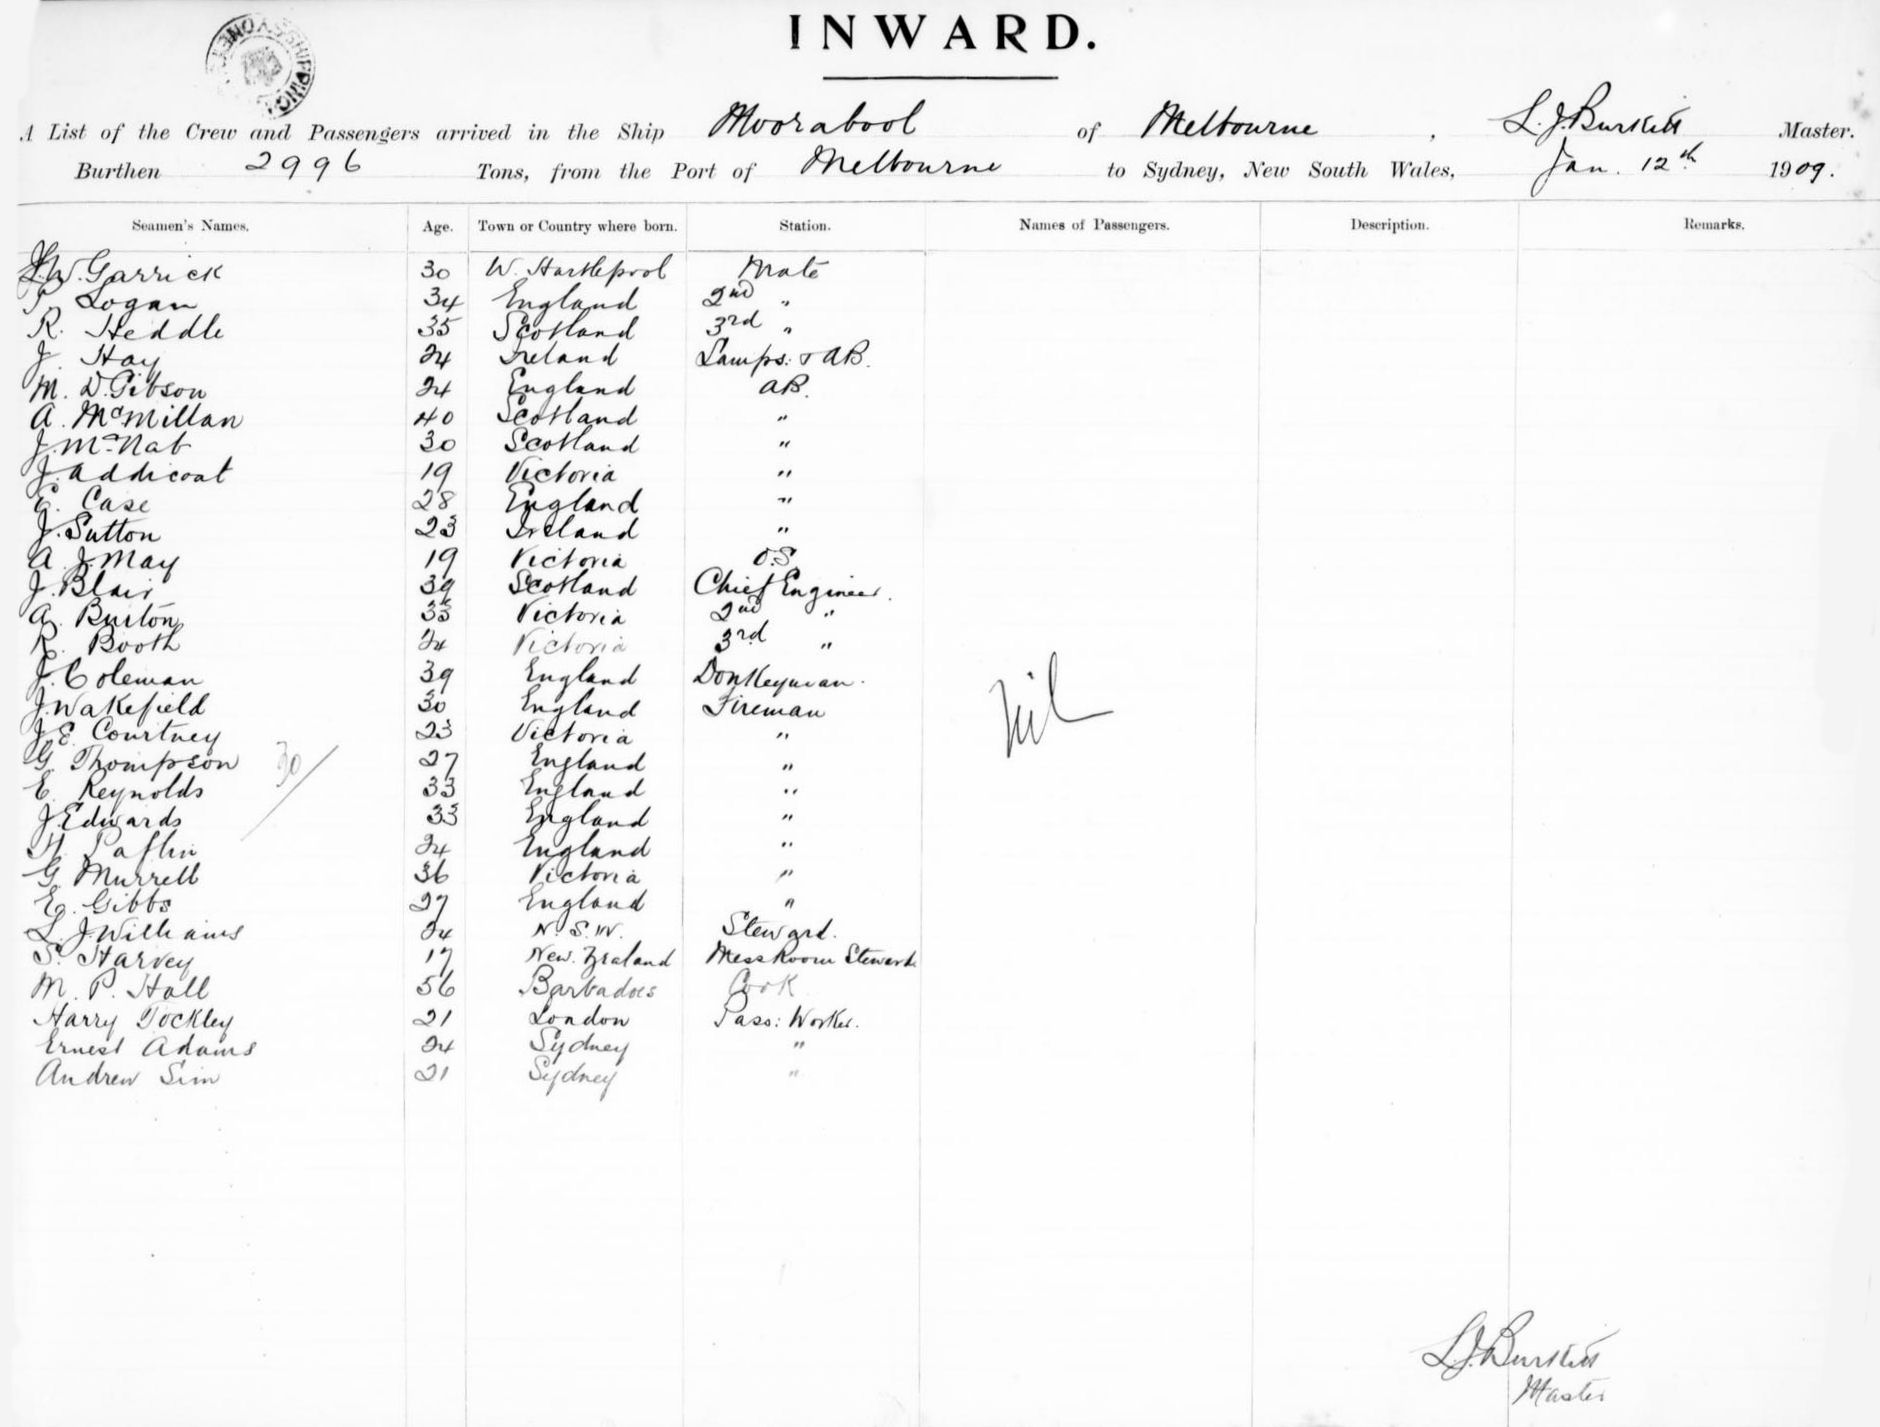 INWARD.
SHIPPING
A List of the Crew and Passengers arrived in the Ship Moorabool of Melbourne, L. J. Burkitt Master.
Burthen 2996 Tons, from the Port of Melbourne to Sydney, New South Wales, Jan. 12th 1909.
Seamen's Names. Age. Town or Country where born. Station. Names of Passengers. Description. Remarks.
W. Garrick 30 W. Hartlepool Mate
P Logan 34 England 2nd "
R. Heddle 35 Scotland 3rd "
J. Hay 24 Ireland Lamps: & AB.
M. D. Gibson 24 England AB.
A. McMillan 40 Scotland "
J. McNab 30 Scotland "
J. Addicoat 19 Victoria "
E. Case 28 England "
J. Sutton 23 Ireland "
A. J. May 19 Victoria O.S
J. Blair 39 Scotland Chief Engineer.
A. Burton 35 Victoria 2nd "
R. Booth 24 Victoria 3rd "
J. Coleman 39 England Donkeyman.
J. Wakefield 30 England Fireman
Nil
J. E. Courtney 23 Victoria "
G. Thompson 30/ 27 England "
E. Reynolds 33 England "
J. Edwards 33 England "
H. 24 England "
G. Murrell 36 Victoria "
Eg. Gibbs 27 England "
L. J. Williams 24 N. S. W. Steward.
S. Harvey 17 New. Zealand Mess Room Steward.
M. P. Hall 56 Barbadoes Cook
Harry Tockley 21 London Pass: Worker.
Ernest Adams 24 Sydney "
Andrew Sim 21 Sydney "
L. J. Burkitt
Master